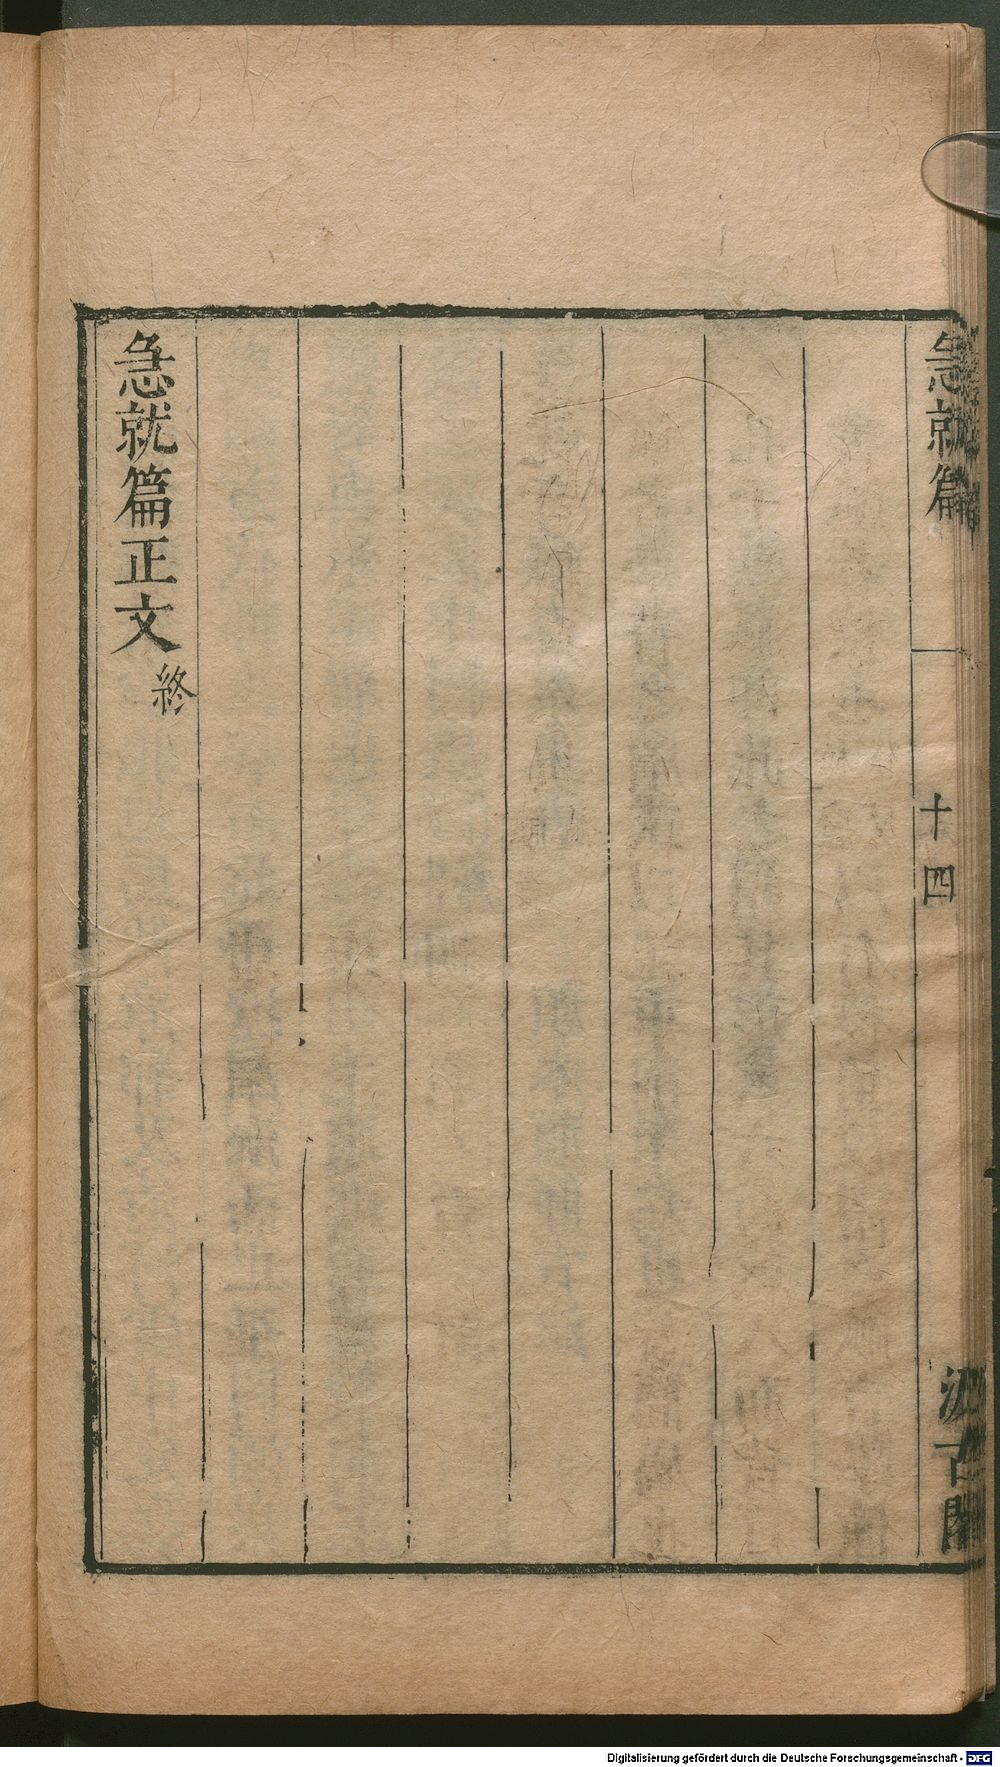 急就篇
十四
汲古閣
急就篇正文終
Digitalisierung gefördert durch die Deutsche Forschungsgemeinschaft - DFG